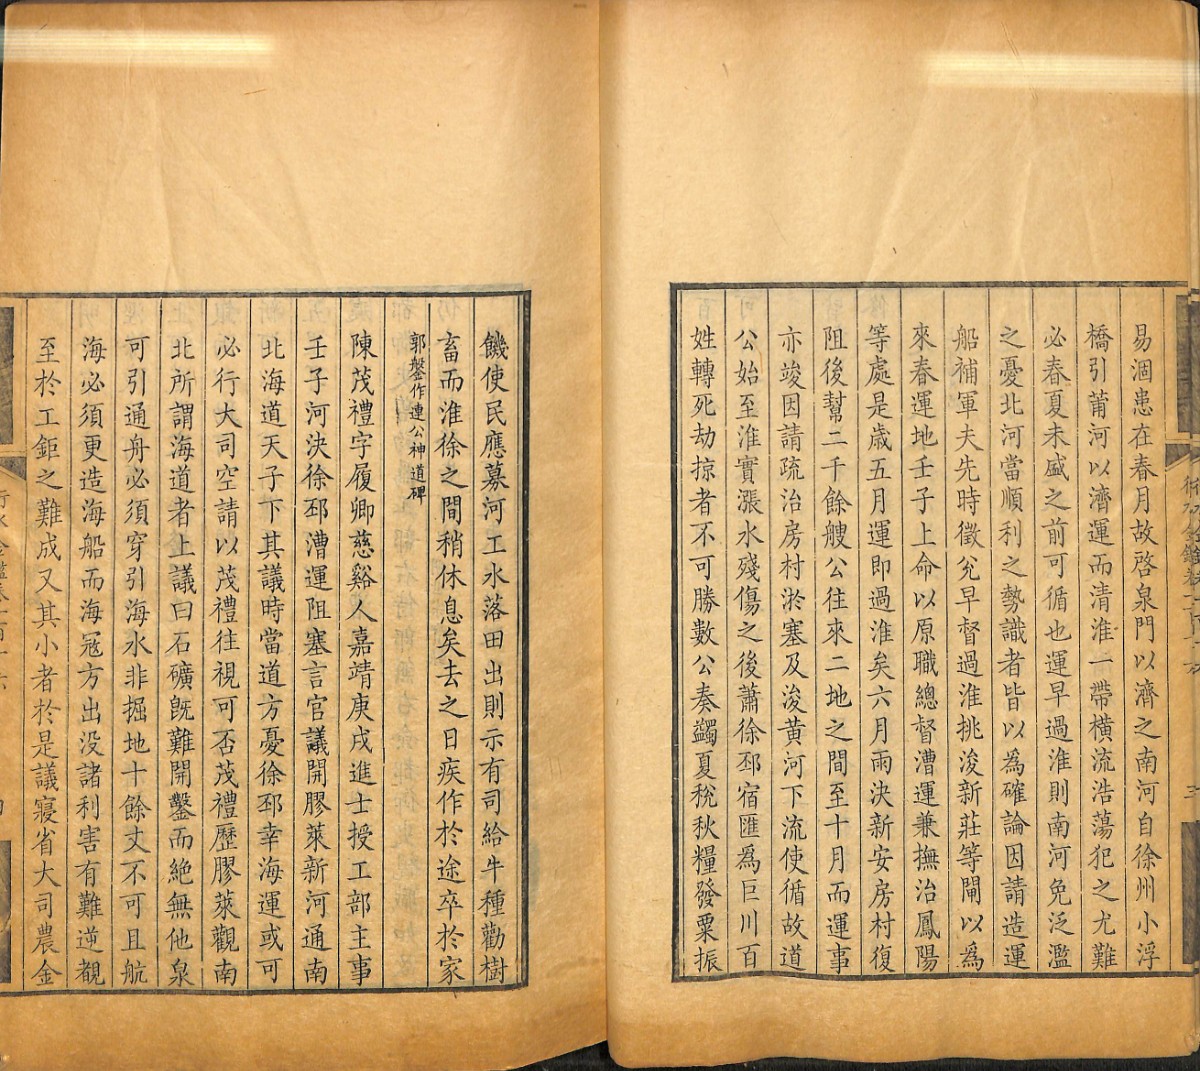 易涸患在春月故啓泉門以濟之南河自徐州小浮
橋引莆河以濟運而清淮一帶橫流浩蕩犯之尤難
必春夏未盛之前可循也運早過淮則南河免泛濫
之憂北河當順利之勢識者皆以爲確論因請造運
船補軍夫先時徵兌早督過淮挑浚新莊等閘以爲
來春運地壬子上命以原職總督漕運兼撫治鳳陽
等處是歲五月運即過淮矣六月雨決新安房村復
阻後幫二千餘艘公往來二地之間至十月而運事
亦竣因請疏治房村淤塞及浚黃河下流使循故道
公始至淮實漲水殘傷之後蕭徐邳宿匯爲巨川百
姓轉死劫掠者不可勝數公奏蠲夏稅秋糧發粟振
饑使民應募河工水落田出則示有司給牛種勸樹
畜而淮徐之間稍休息矣去之日疾作於途卒於家
郭鏊作連公神道碑
陳茂禮字履卿慈谿人嘉靖庚戌進士授工部主事
壬子河決徐邳漕運阻塞言官議開膠萊新河通南
北海道天子下其議時當道方憂徐邳幸海運或可
必行大司空請以茂禮往視可否茂禮歷膠萊觀南
北所謂海道者上議曰石礦旣難開鑿而絶無他泉
可引通舟必須穿引海水非掘地十餘丈不可且航
海必須更造海船而海寇方出没諸利害有難逆覩
至於工鉅之難成又其小者於是議寢省大司農金